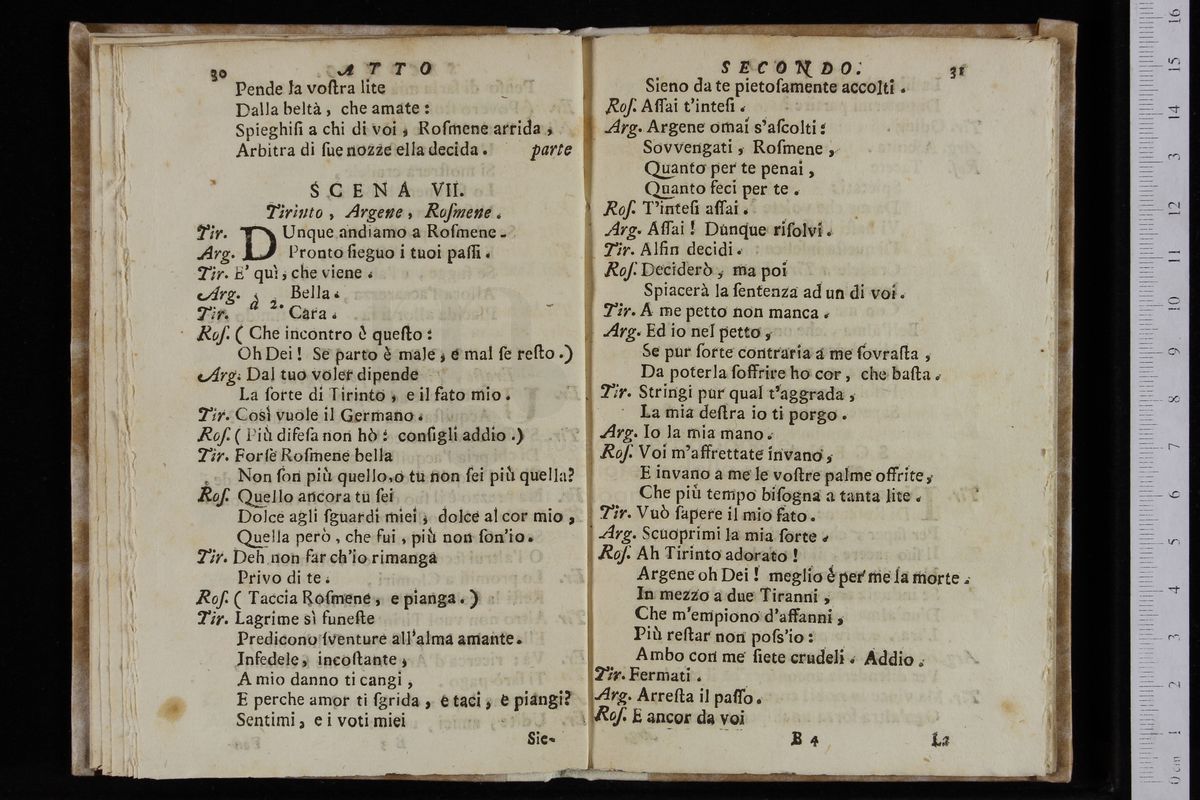 30 ATTO
Pende la voſtra lite
Dalla beltà, che amate:
Spieghiſi a chi di voi, Roſmene arrida,
Arbitra di ſue nozze ella decida. parte
SCENA VII.
Tirinto, Argene, Roſmene.
Tir. DUnque andiamo a Roſmene.
Arg. Pronto ſieguo i tuoi paſſi.
Tir. E' quì, che viene.
Arg. Bella.
a 2.
Tir. Cara.
Roſ. ( Che incontro è queſto:
Oh Dei! Se parto è male, e mal ſe reſto.)
Arg. Dal tuo voler dipende
La ſorte di Tirinto, e il fato mio.
Tir. Così vuole il Germano.
Roſ. ( Più difeſa non hò: conſigli addio.)
Tir. Forſe Roſmene bella
Non ſon più quello, o tu non ſei più quella?
Roſ. Quello ancora tu ſei
Dolce agli ſguardi miei, dolce al cor mio,
Quella però, che fui, più non ſon'io.
Tir. Deh non far ch'io rimanga
Privo di te.
Roſ. ( Taccia Roſmene, e pianga.)
Tir. Lagrime sì funeſte
Predicono ſventure all'alma amante.
Infedele, incoſtante,
A mio danno ti cangi,
E perche amor ti ſgrida, e taci, e piangi?
Sentimi, e i voti miei
Sie-
SECONDO. 31
Sieno da te pietoſamente accolti.
Roſ. Aſſai t'inteſi.
Arg. Argene omai s'aſcolti:
Sovvengati, Roſmene,
Quanto per te penai,
Quanto feci per te.
Roſ. T'inteſi aſſai.
Arg. Aſſai! Dunque riſolvi.
Tir. Alfin decidi.
Roſ. Deciderò, ma poi
Spiacerà la ſentenza ad un di voi.
Tir. A me petto non manca.
Arg. Ed io nel petto,
Se pur ſorte contraria a me ſovraſta,
Da poterla ſoffrire ho cor, che baſta.
Tir. Stringi pur qual t'aggrada,
La mia deſtra io ti porgo.
Arg. Io la mia mano.
Roſ. Voi m'affrettate invano,
E invano a me le voſtre palme offrite,
Che più tempo biſogna a tanta lite.
Tir. Vuò ſapere il mio fato.
Arg. Scuoprimi la mia ſorte.
Roſ. Ah Tirinto adorato!
Argene oh Dei! meglio è per me la morte.
In mezzo a due Tiranni,
Che m'empiono d'affanni,
Più reſtar non poſs'io:
Ambo con me ſiete crudeli. Addio.
Tir. Fermati.
Arg. Arreſta il paſſo.
Roſ. E ancor da voi
B 4 La
0 cm 1 2 3 4 5 6 7 8 9 10 11 12 13 14 15 16